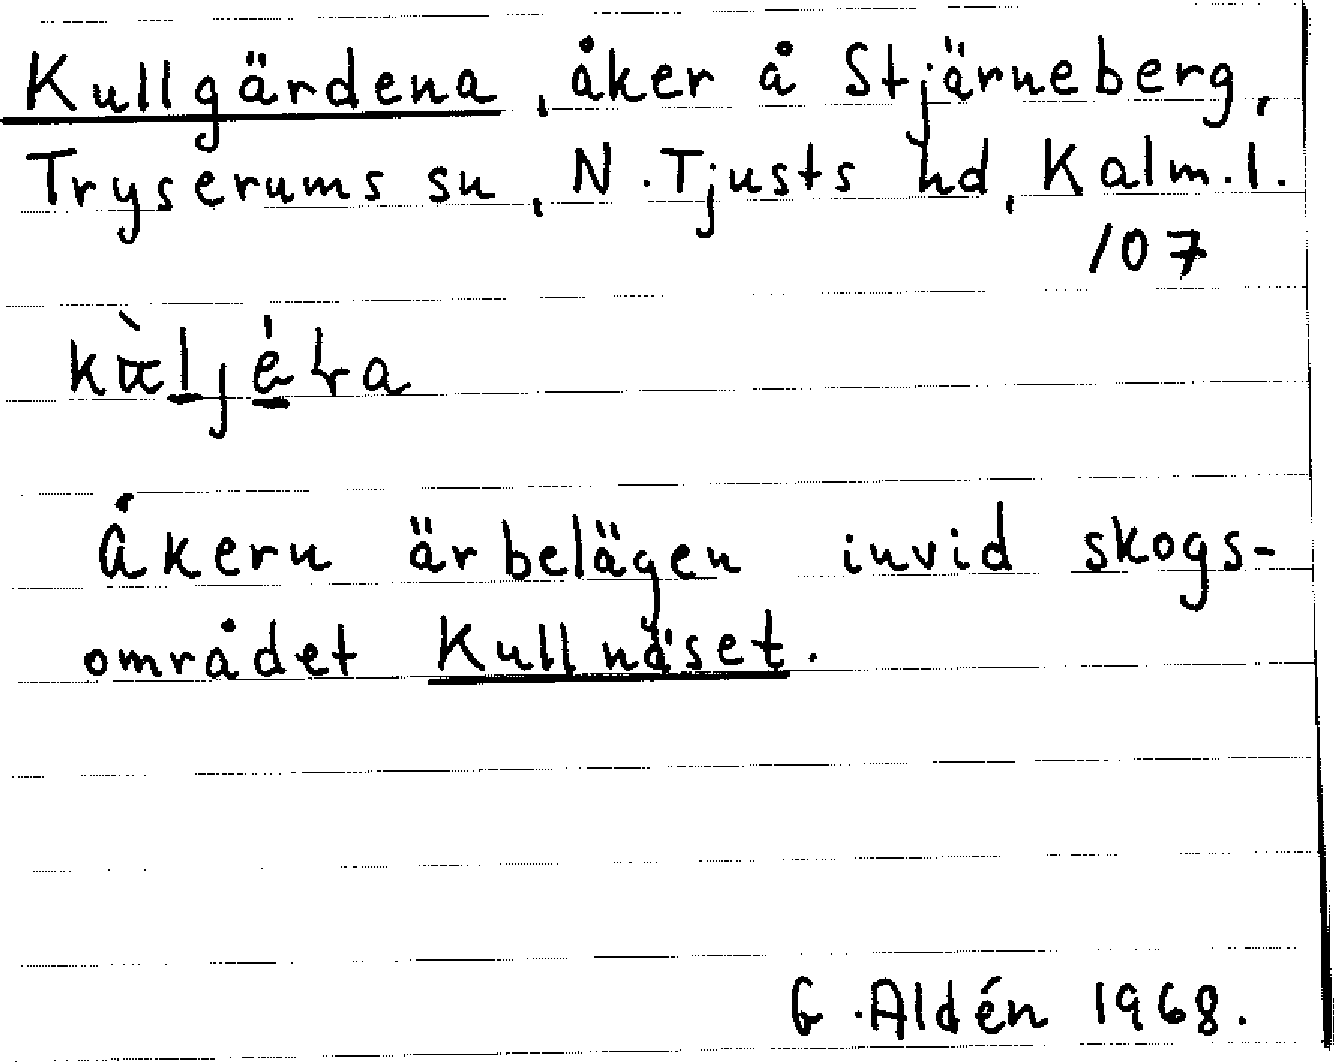 Kullgärdena, åker å Stjärneberg,
Tryserums sn, N. Tjusts hd, Kalm. l.
107
Åkern är belägen invid skogs-
området Kullnäset.
G. Aldén 1968.